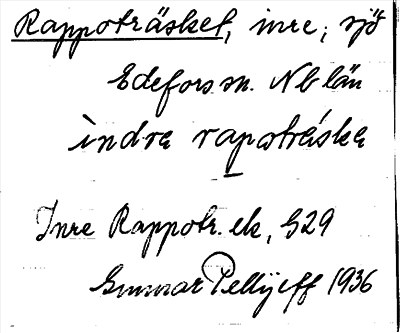 Rappoträsket, inre, sjö
Edefors sn. Nb län
indra rapoträska
Inre Rappotr. ek, S29
Gunnar Pellijeff 1936